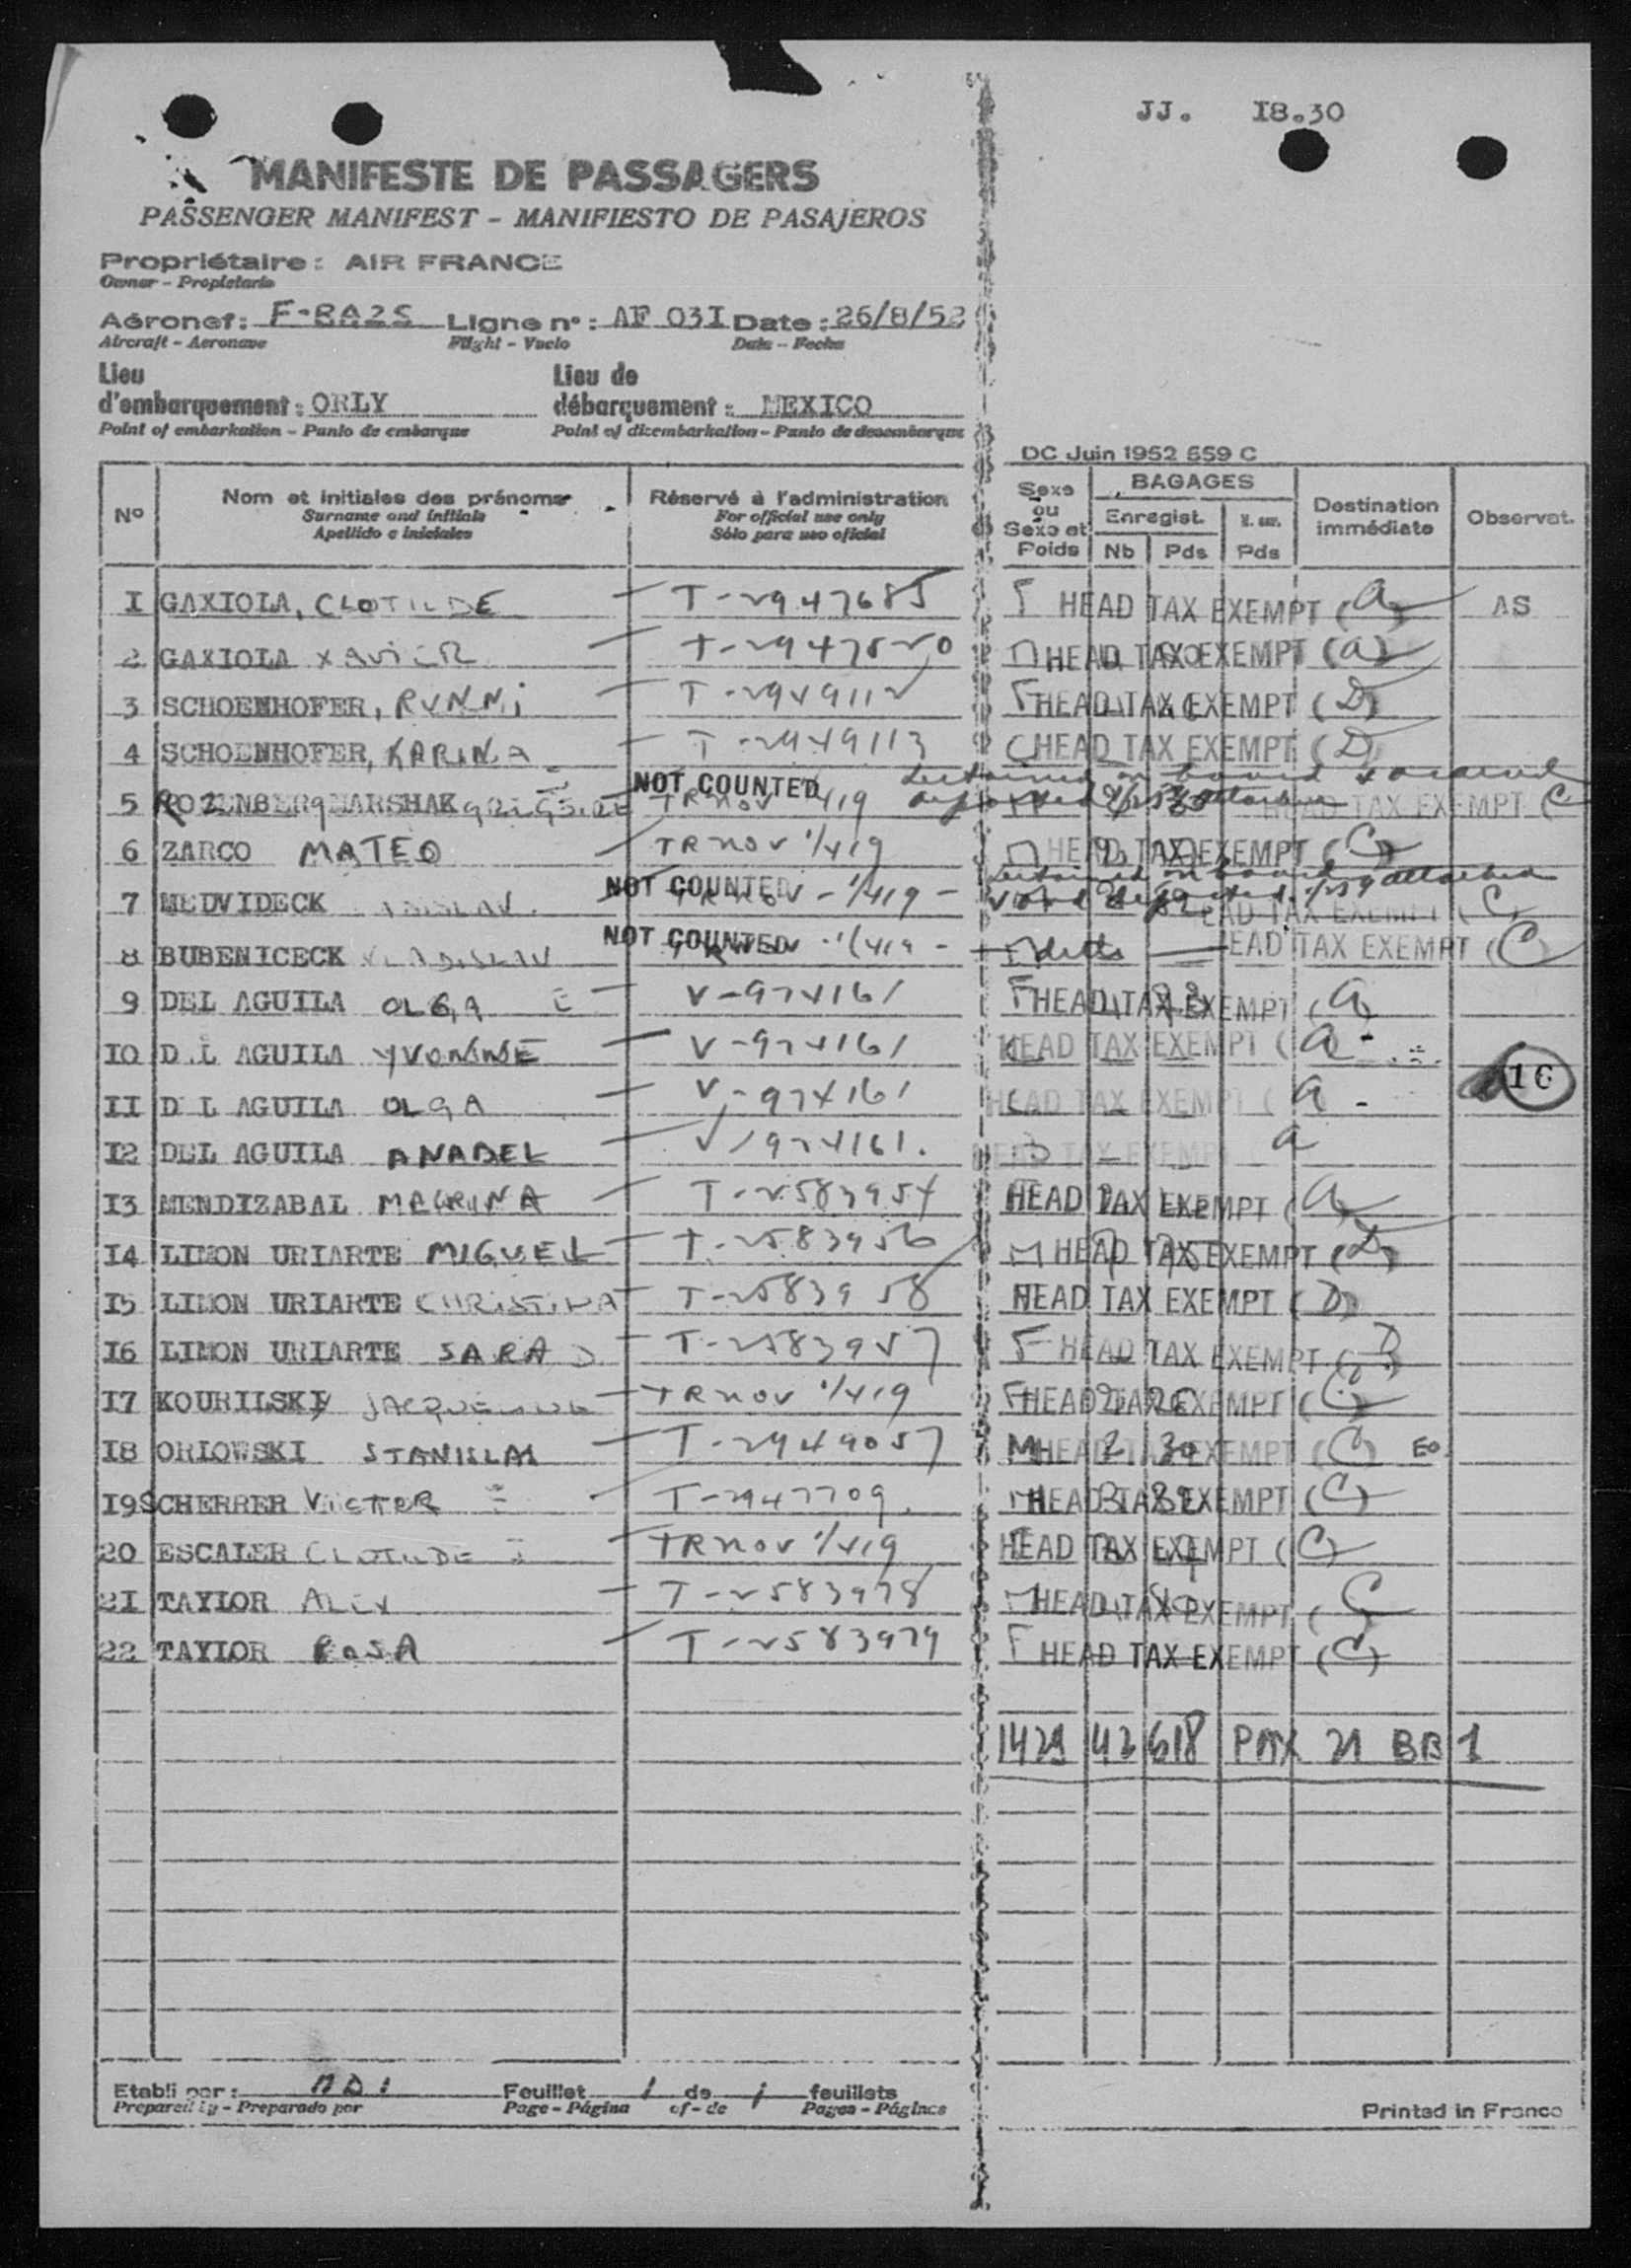 JJ. I8.30
MANIFESTE DE PASSAGERS
PASSENGER MANIFEST - MANIFIESTO DE PASAJEROS
Propriétaire: AIR FRANCE
Owner - Propietario
Aéronef: Ligne n°: AF 03I Date: 26/8/52
Aircraft - Aeronave Flight - Vuelo Date - Fecha
Lieu Lieu de
d'embarquement: ORLY débarquement: MEXICO
Point of embarkation - Punto de embarque Point of disembarkation - Punto de desembarque
DC Juin 1952 559 C
N° Nom et initiales des prénoms Réservé à l'administration Sexe ou Sexe et Poids BAGAGES Enregist. Nb Pds Pds Destination immédiate Observat.
Surname and initials For official use only
Apellido e iniciales Sólo para uso oficial
I GAXIOLA, CLOTILDE T-2947685 F HEAD TAX EXEMPT (a) AS
2 GAXIOLA XAVIER HEAD TAX EXEMPT (a)
3 SCHOENHOFER, T-2949112 F HEAD TAX EXEMPT (D)
4 SCHOENHOFER, KARINA T-2949113 HEAD TAX EXEMPT (D)
5 NOT COUNTED 1/419 HEAD TAX EXEMPT (C
6 ZARCO MATEO TR nov 1/419 HEAD TAX EXEMPT (C)
7 MEDVIDECK NOT COUNTED 1/419 HEAD TAX EXEMPT (C)
8 BUBENICECK VLADISLAV NOT COUNTED 1/419 HEAD TAX EXEMPT (C)
9 DEL AGUILA OLGA V-924161 F HEAD TAX EXEMPT (a)
IO D L AGUILA YVONNE V-924161 HEAD TAX EXEMPT (a)
16
II D L AGUILA OLGA V-924161 HEAD TAX EXEMPT (a
I2 DEL AGUILA ANABEL V-924161. HEAD TAX EXEMPT a
I3 MENDIZABAL T-2583954 HEAD TAX EXEMPT (a)
I4 LIMON URIARTE MIGUEL T-2583956 M HEAD TAX EXEMPT (D)
I5 LIMON URIARTE CHRISTINA T-2583958 HEAD TAX EXEMPT (D)
I6 LIMON URIARTE SARA D T-2583957 F HEAD TAX EXEMPT (D)
I7 KOURILSKY JACQUELINE TR nov 1/419 F HEAD TAX EXEMPT (C)
I8 ORLOWSKI STANISLAS T-2949057 M 2 30 HEAD TAX EXEMPT (C) EO.
I9 SCHERRER VICTOR T-2947709. HEAD TAX EXEMPT (C)
20 ESCALER CLOTILDE TR nov 1/419 HEAD TAX EXEMPT (C)
2I TAYLOR ALEX T-2583978 M HEAD TAX EXEMPT (C
22 TAYLOR ROSA T-2583979 F HEAD TAX EXEMPT (C)
1429 42 618 PAX 21 BB 1
Etabli par: Feuillet 1 de 1 feuillets
Prepared by - Preparado por Page - Página of - de Pages - Páginas
Printed in France